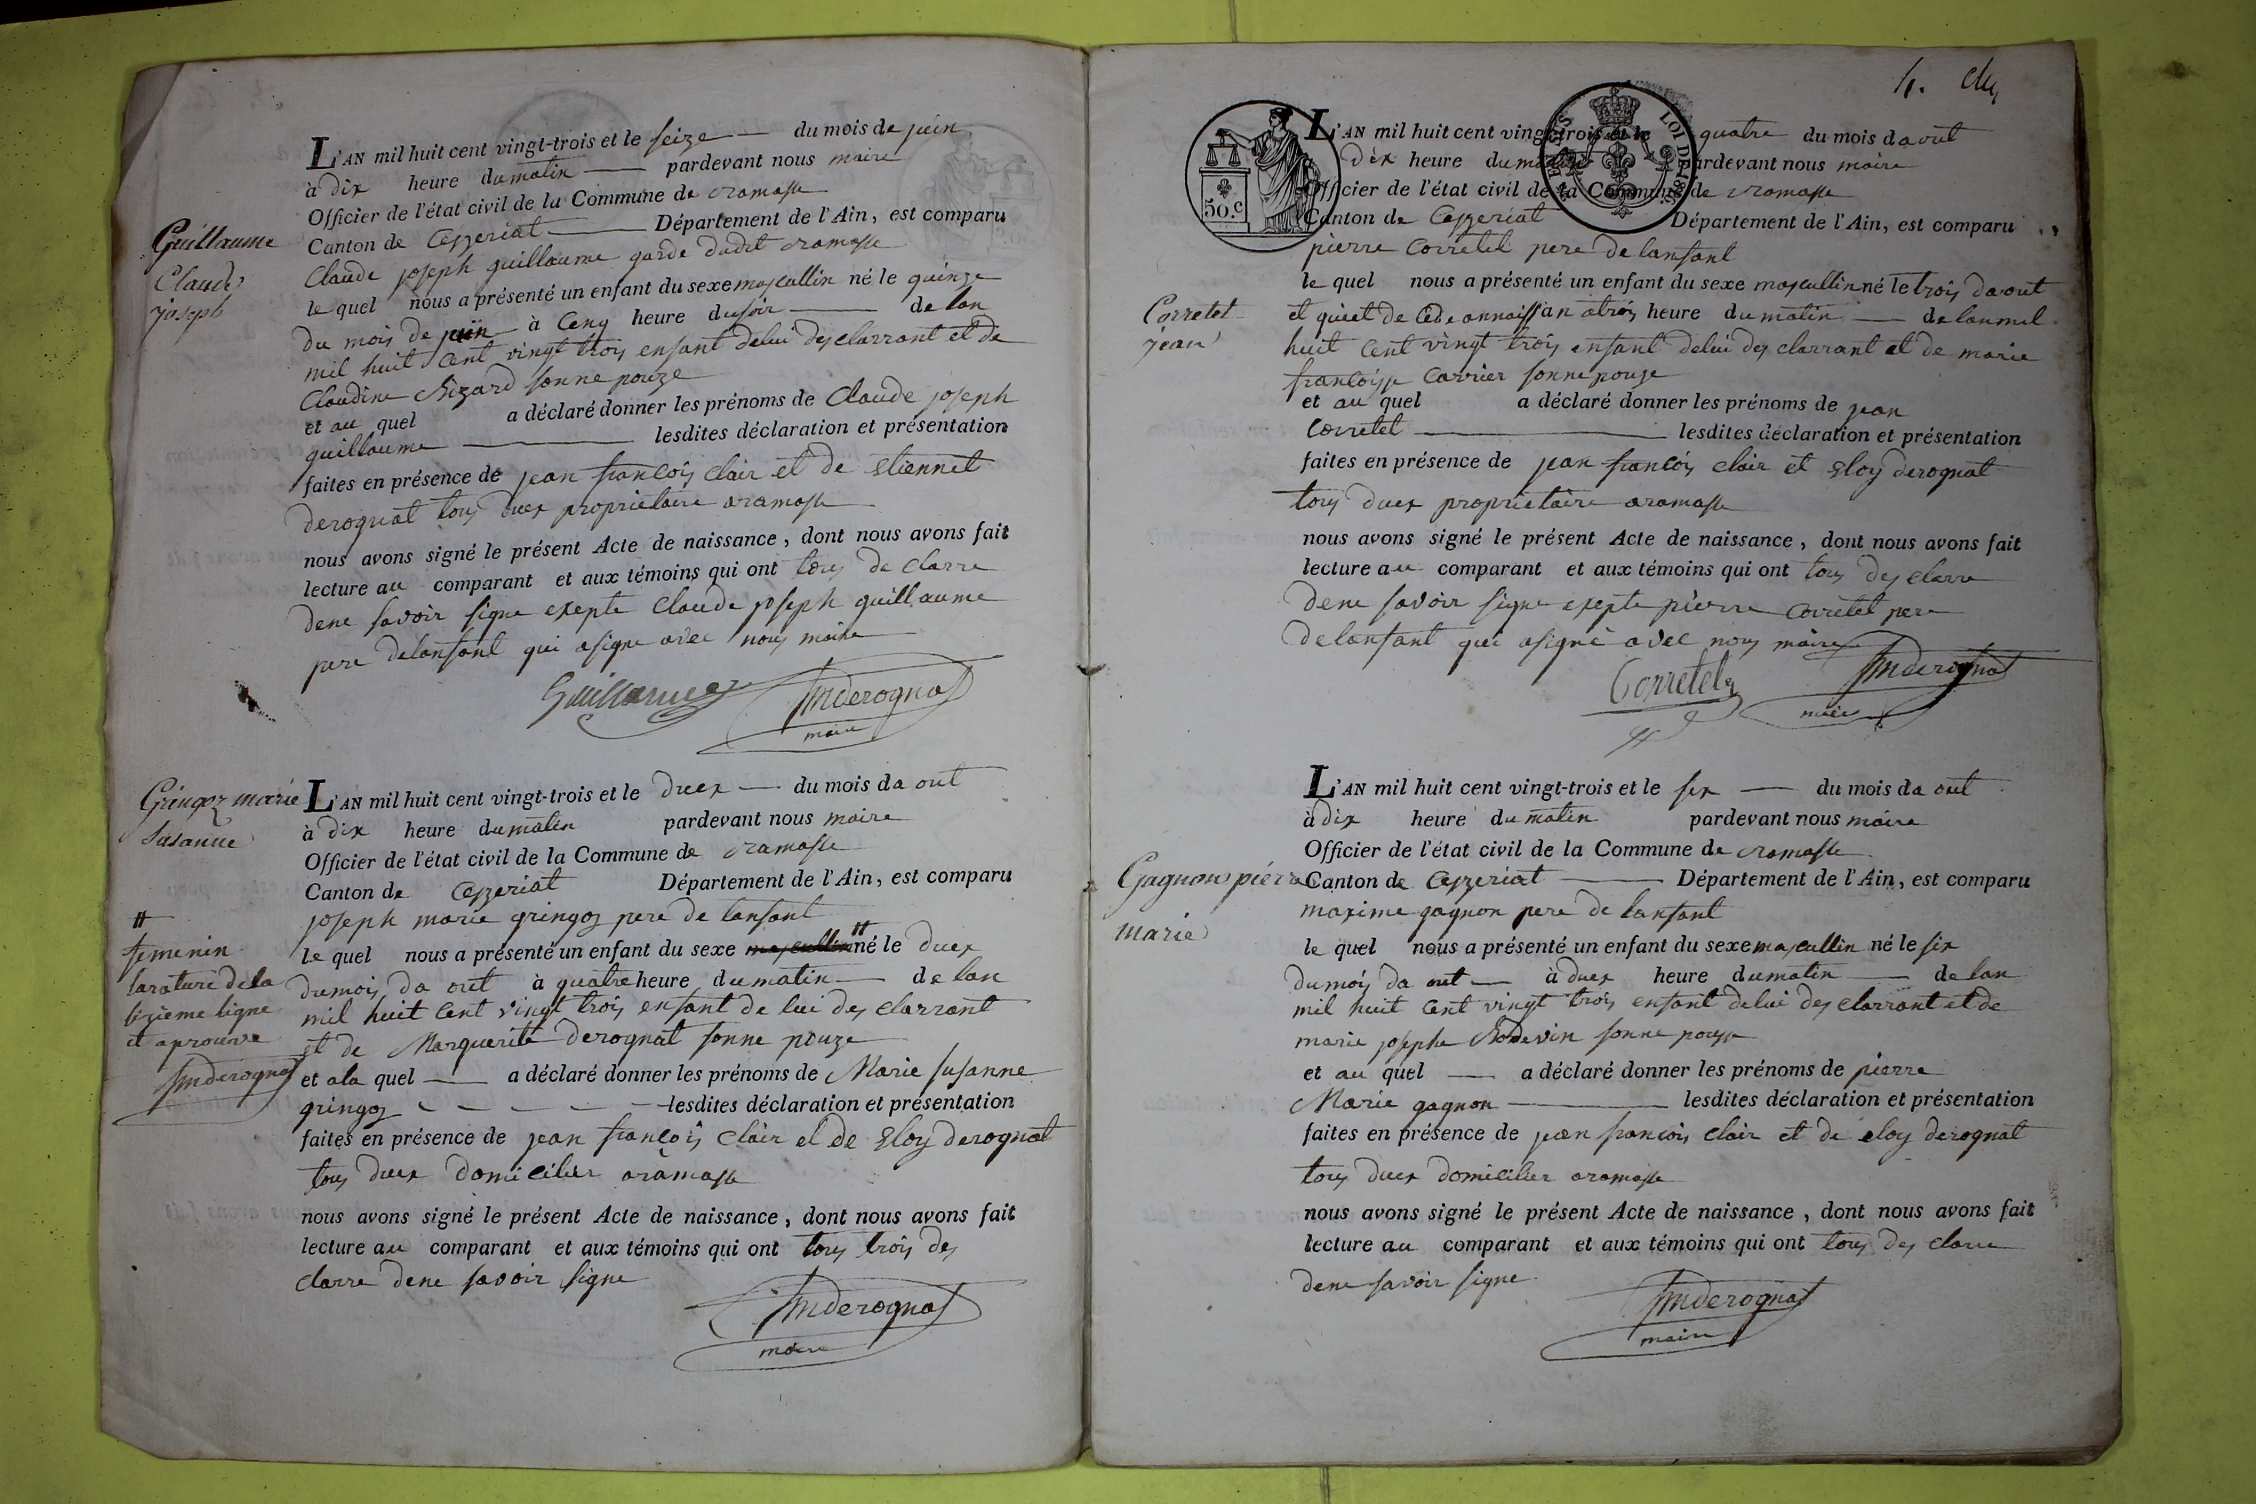 L'AN mil huit cent vingt-trois et le seize du mois de juin
à dix heure du matin pardevant nous maire
Officier de l'état civil de la Commune de ramasse
Canton de Ceyzeriat Département de l'Ain, est comparu
Claude joseph guillaume garde dudit ramasse
le quel nous a présenté un enfant du sexe mascullin né le quinze
du mois de juin à Cenq heure du soir de lan
mil huit Cent vingt trois enfant delui desclarrant et de
Claudine sonne pouze
et au quel a déclaré donner les prénoms de Claude joseph
guillaume lesdites déclaration et présentation
faites en présence de jean françois Clair et de Etiennet
derognat tous duex proprietaire aramasse
nous avons signé le présent Acte de naissance, dont nous avons fait
lecture au comparant et aux témoins qui ont tous de Clarre
dene savoir signe exepte Claude joseph guillaume
pere delanfant qui asigne avec nous maire
Guillaume
derognat
maire
Guillaume
Claude
joseph
L'AN mil huit cent vingt-trois et le duex du mois da out
à dix heure du matin pardevant nous maire
Officier de l'état civil de la Commune de ramasse
Canton de Ceyzeriat Département de l'Ain, est comparu
joseph marie gringoz pere de lanfant
le quel nous a présenté un enfant du sexe mascullin # né le duex
du mois da out à quatre heure du matin de lan
mil huit Cent vingt trois enfant de lui des clarrant
et de Marguerite derognat sonne pouze
et ala quel a déclaré donner les prénoms de Marie susanne
gringoz lesdites déclaration et présentation
faites en présence de jean françois Clair et de Eloy derognat
tous duex domicilier aramasse
nous avons signé le présent Acte de naissance, dont nous avons fait
lecture au comparant et aux témoins qui ont tous trois des
clarre dene savoir signe
derognat
maire
Gringoz marie
susanne
#
femenin
larature dela
ligne
et aprouve
derognat
4.
50.C
LOI DE
L'AN mil huit cent vingt-trois et le quatre du mois daout
dix heure du matin pardevant nous maire
Officier de l'état civil de la Commune de ramasse
Canton de Ceyzeriat Département de l'Ain, est comparu
pierre Corretel pere de lanfant
le quel nous a présenté un enfant du sexe mascullin né le trois daout
atrois heure du matin de lan mil
huit Cent vingt trois enfant delui des clarrant et de marie
françoise Carrier sonne pouze
et au quel a déclaré donner les prénoms de jean
Corretel lesdites déclaration et présentation
faites en présence de jean françois Clair et Eloy derognat
tous duex proprietaire aramasse
nous avons signé le présent Acte de naissance, dont nous avons fait
lecture au comparant et aux témoins qui ont tous des clarre
dene savoir signe exepte pierre Corretel pere
delanfant qui asigné avec nous maire
Corretel
derognat
maire
Corretel
jean
L'AN mil huit cent vingt-trois et le six du mois da out
à dix heure du matin pardevant nous maire
Officier de l'état civil de la Commune de ramasse
Canton de Ceyzeriat Département de l'Ain, est comparu
maxime gagnon pere de lanfant
le quel nous a présenté un enfant du sexe mascullin né le six
du mois da out à duex heure du matin de lan
mil huit Cent vingt trois enfant delui des clarrant et de
marie josephe sonne pouze
et au quel a déclaré donner les prénoms de pierre
Marie gagnon lesdites déclaration et présentation
faites en présence de jean françois Clair et de eloy derognat
tous duex domicilier aramasse
nous avons signé le présent Acte de naissance, dont nous avons fait
lecture au comparant et aux témoins qui ont tous des clarre
dene savoir signe
derognat
maire
Gagnon pierre
marie